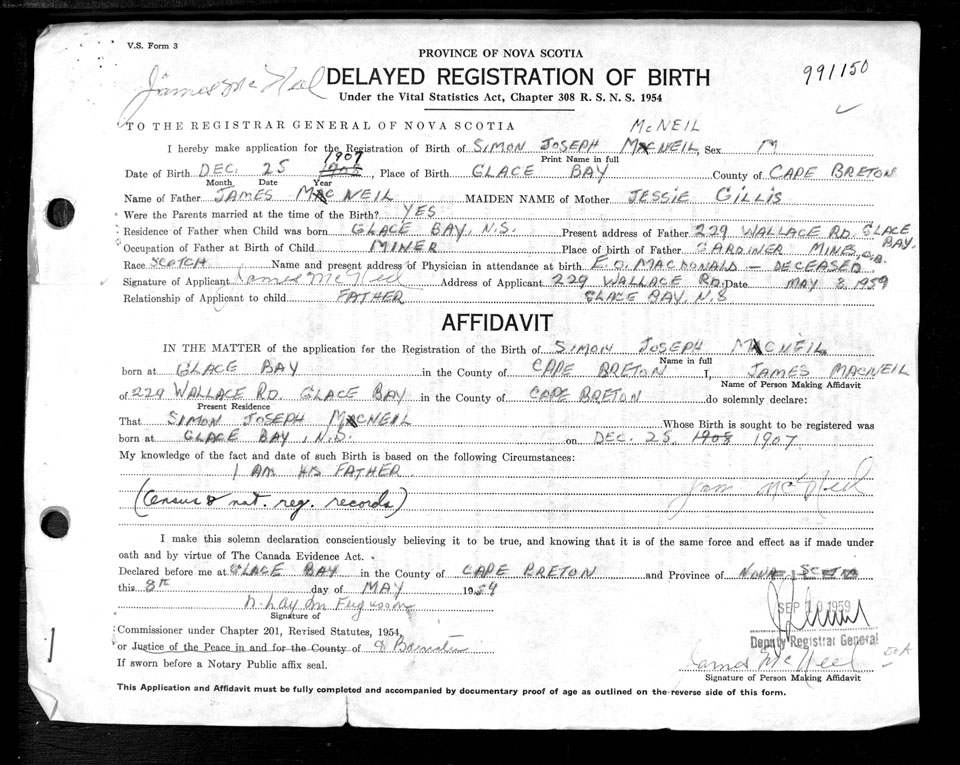 V.S. Form 3
PROVINCE OF NOVA SCOTIA
991150
James McNeil
DELAYED REGISTRATION OF BIRTH
Under the Vital Statistics Act, Chapter 308 R. S. N. S. 1954
TO THE REGISTRAR GENERAL OF NOVA SCOTIA
MCNEIL
I hereby make application for the Registration of Birth of SIMON JOSEPH MACNEIL, Sex M
Print Name in full
1907
Date of Birth DEC. 25 1908, Place of Birth GLACE BAY County of CAPE BRETON
Month Date Year
Name of Father JAMES MACNEIL MAIDEN NAME of Mother JESSIE GILLIS
Were the Parents married at the time of the Birth? YES
Residence of Father when Child was born GLACE BAY, N.S. Present address of Father 229 WALLACE RD. GLACE BAY.
Occupation of Father at Birth of Child MINER Place of birth of Father GARDINER MINES, C.B.
Race SCOTCH Name and present address of Physician in attendance at birth E.O. MACDONALD - DECEASED
Signature of Applicant James McNeil Address of Applicant 229 WALLACE RD. Date MAY 8, 1959
Relationship of Applicant to child FATHER GLACE BAY, N.S
AFFIDAVIT
IN THE MATTER of the application for the Registration of the Birth of SIMON JOSEPH MACNEIL
Name in full
born at GLACE BAY in the County of CAPE BRETON I, JAMES MACNEIL
Name of Person Making Affidavit
of 229 WALLACE RD. GLACE BAY in the County of CAPE BRETON do solemnly declare:
Present Residence
That SIMON JOSEPH MACNEIL Whose Birth is sought to be registered was
born at GLACE BAY, N.S. on DEC. 25, 1908 1907.
My knowledge of the fact and date of such Birth is based on the following Circumstances:
I AM HIS FATHER
(Census & nat. reg. records)
Jam McNeil
I make this solemn declaration conscientiously believing it to be true, and knowing that it is of the same force and effect as if made under
oath and by virtue of The Canada Evidence Act.
Declared before me at GLACE BAY in the County of CAPE BRETON and Province of NOVA SCOTIA
this 8th day of MAY 1959
Signature of
SEP 10 1959
Commissioner under Chapter 201, Revised Statutes, 1954,
or Justice of the Peace in and for the County of
Deputy Registrar General
If sworn before a Notary Public affix seal.
James McNeil
Signature of Person Making Affidavit
This Application and Affidavit must be fully completed and accompanied by documentary proof of age as outlined on the reverse side of this form.